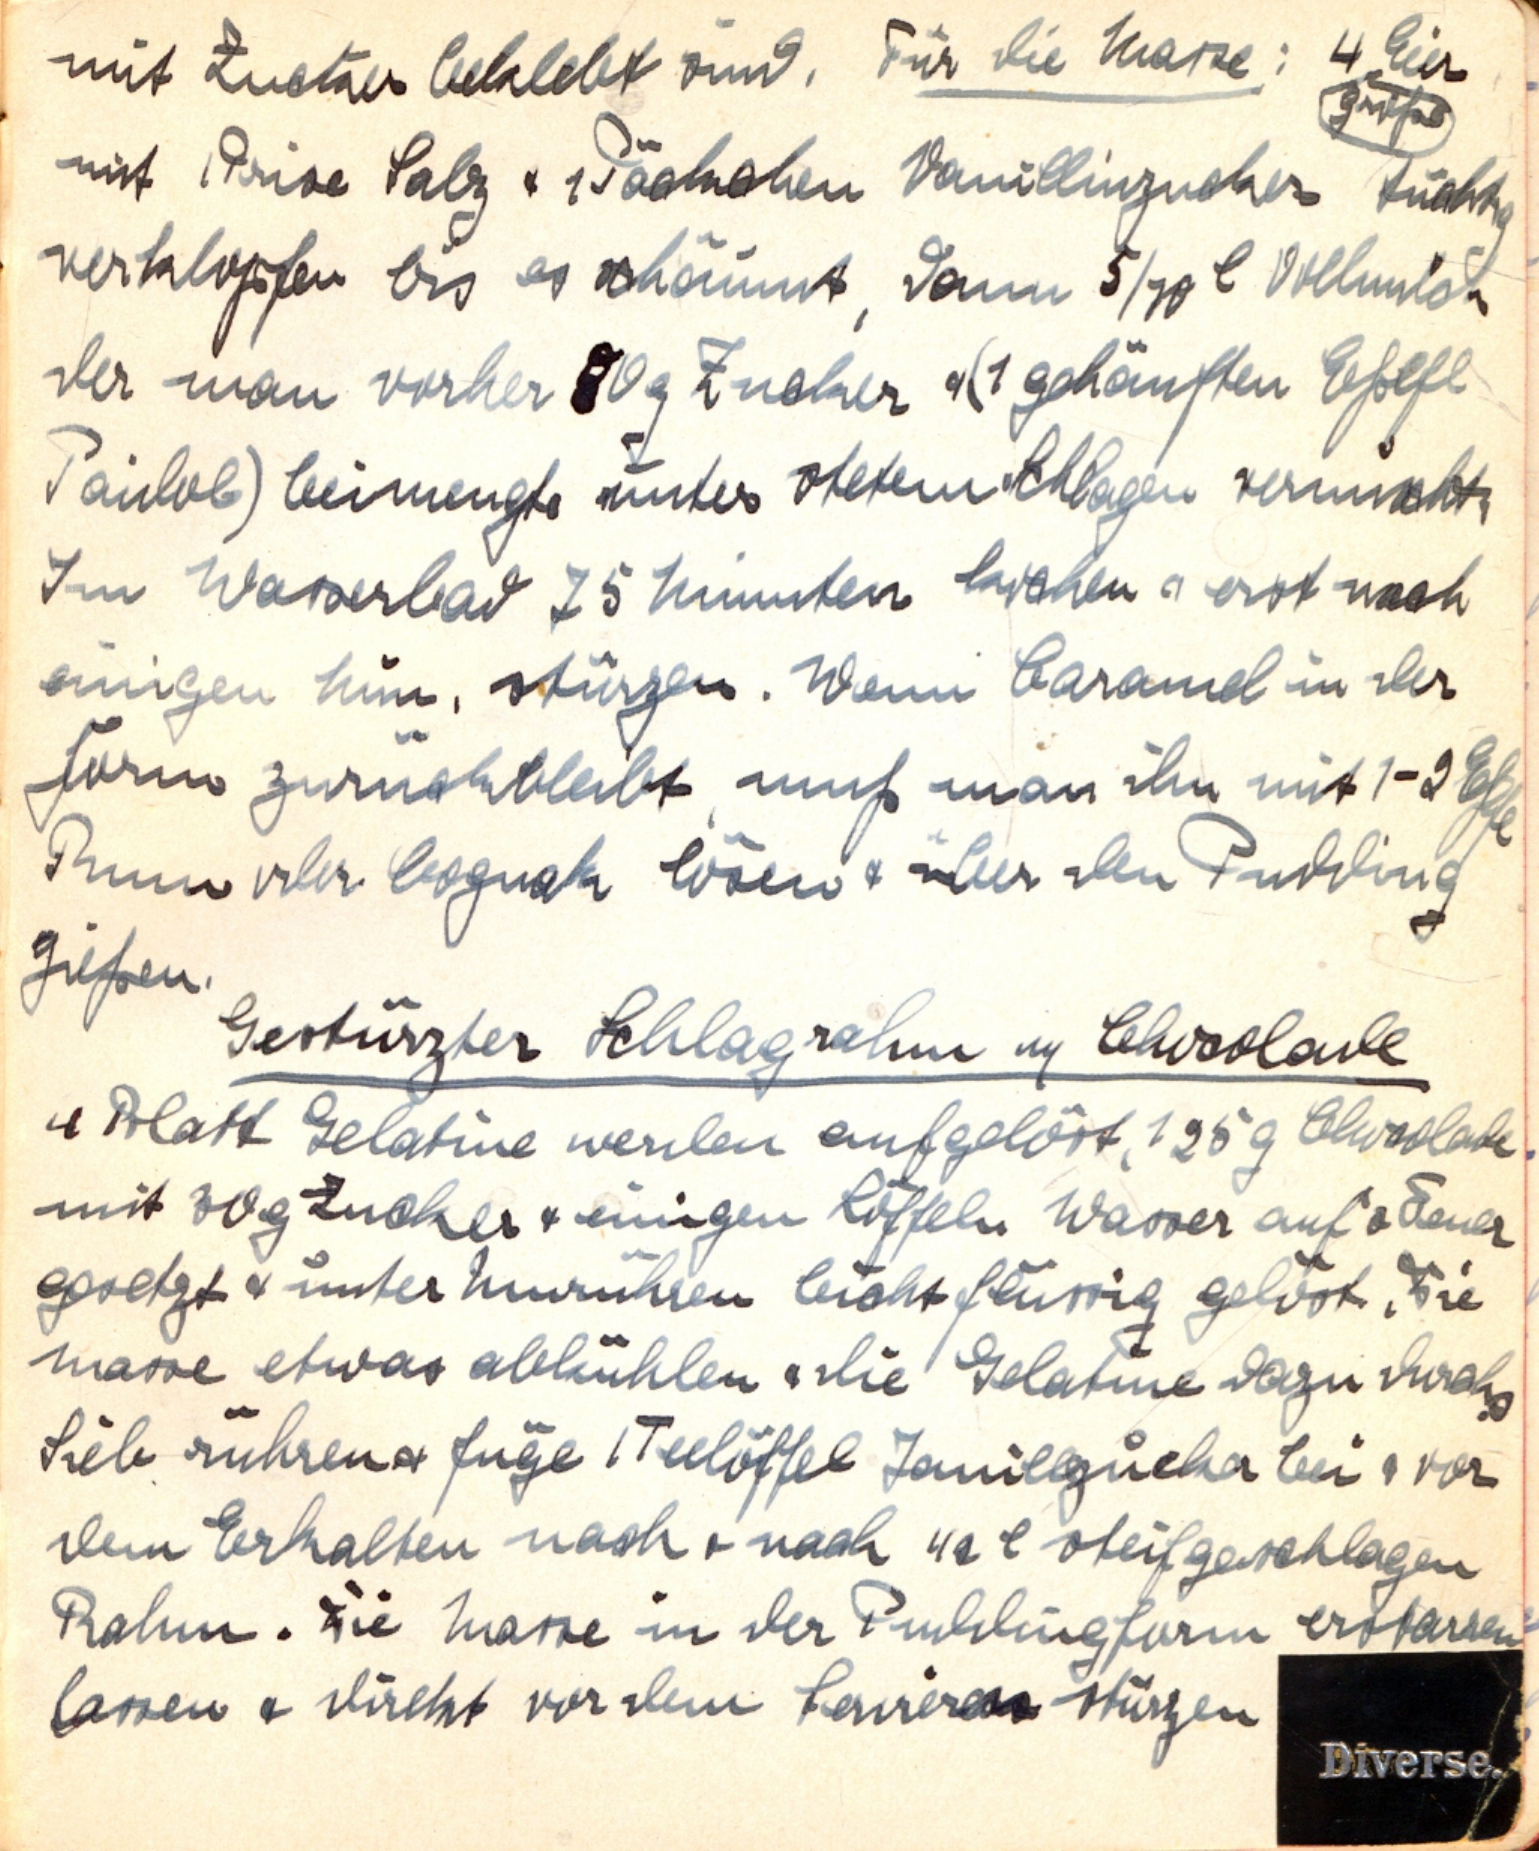 mit Zucker beklebt sind. Für die Masse: 4 Eier
große
mit 1 Prise Salz & 1 Päckchen Vanillinzucker tüchtig
verklopfen bis es schäumt, dann 5/10 l Vollmilch
der man vorher 80g Zucker & (1 gehäuften Eßlfl
Paidol) beimengte unter stetem Schlagen vermischt.
Im Wasserbad 75 Minuten kochen & erst nach
einigen Min. stürzen. Wenn Caramel in der
Form zurückbleibt, muß man ihn mit 1-2 Eßlfl
Rum oder Cognak lösen & über den Pudding
gießen.
Gestürzter Schlagrahm m/ Chocolade
4 Blatt Gelatine werden aufgelöst, 125g Chocolade
mit 30g Zucker & einigen Löffeln Wasser auf's Feuer
gesetzt & unter Umrühren leicht flüssig gelöst. Die
Masse etwas abkühlen & die Gelatine dazu durchs
Sieb rühren & füge 1 Teelöffel Vanillezucker bei & vor
dem Erkalten nach & nach 1/2 l steifgeschlagen
Rahm. Die Masse in der Puddingform erstarren
lassen & direkt vor dem Servieren stürzen
Diverse.